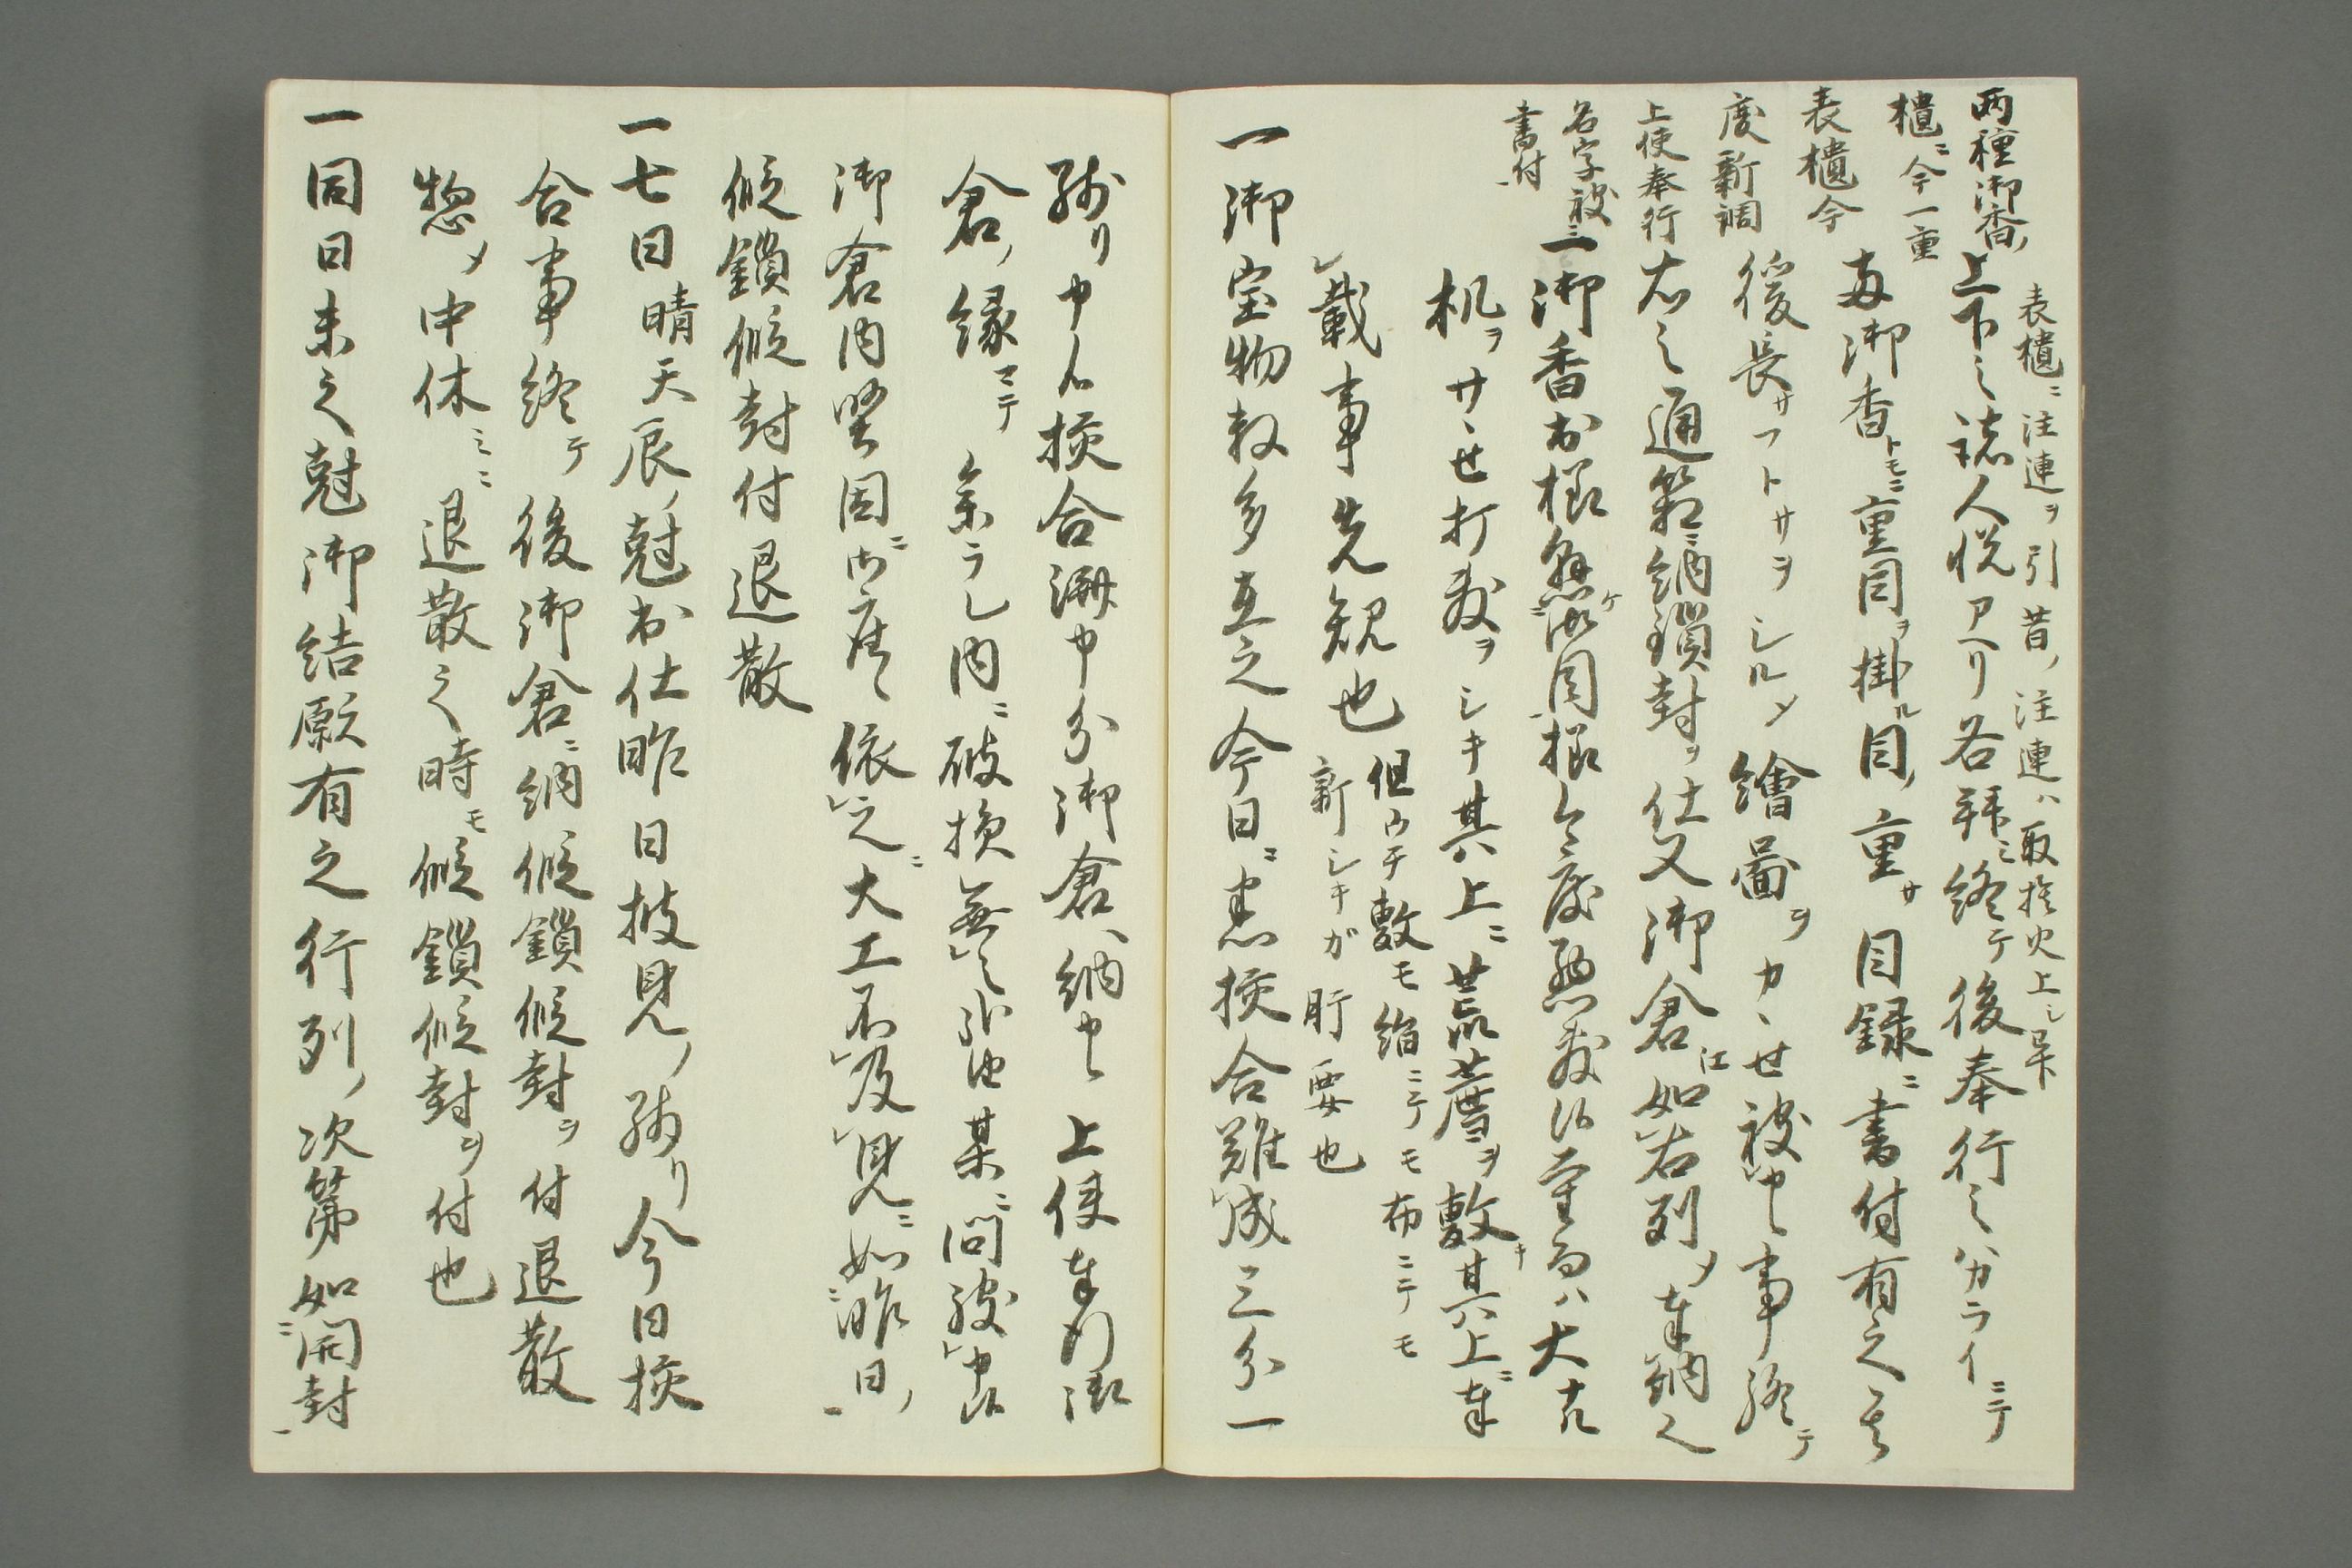 両種御香ノ
櫃ニ今一重
表櫃今
度新調
上使奉行
名字被
書付
表櫃ニ注連ヲ引昔ノ注連ハ取捨火上シ畢
上下之諸人悦アヘリ各拝ミ終テ後奉行之ハカライニテ
両御香トモニ重目ヲ掛ル目ノ重サ目録ニ書付有之其
後長サフトサヲシルメ繪圖ヲカヽせ被申事終テ
右之通箱ニ納鎖封ヲ仕又御倉江如右列メ奉納之
一御香出様無御目様今度悪敷候堂る八大キ
机ヲサヽせ打敷ヲシキ其上ニ荒薦ヲ敷キ其上ニ奉
載事先規也
但ウチ敷モ絹ニテモ布ニテモ
新シキガ肝要也
一御宝物数多在之今日ニ悉捘合難成三分一
残リ申候捘合済申分御倉ヘ納申上使奉行御
倉ノ縁マテ参ラレ内ニ破損無之哉由某ニ問被申候
御倉内堅固ニ御座候依之ニ大工不及見ニ如昨日ノ
仮鎖仮封付退散
一七日晴天辰ノ尅出仕昨日披見ノ残リ今日捘
合事終テ後御倉ニ納仮鎖仮封ヲ付退散
惣メ中休ミニ退散之時モ仮鎖仮封ヲ付也
一同日未之尅御結願有之行列ノ次第如開封